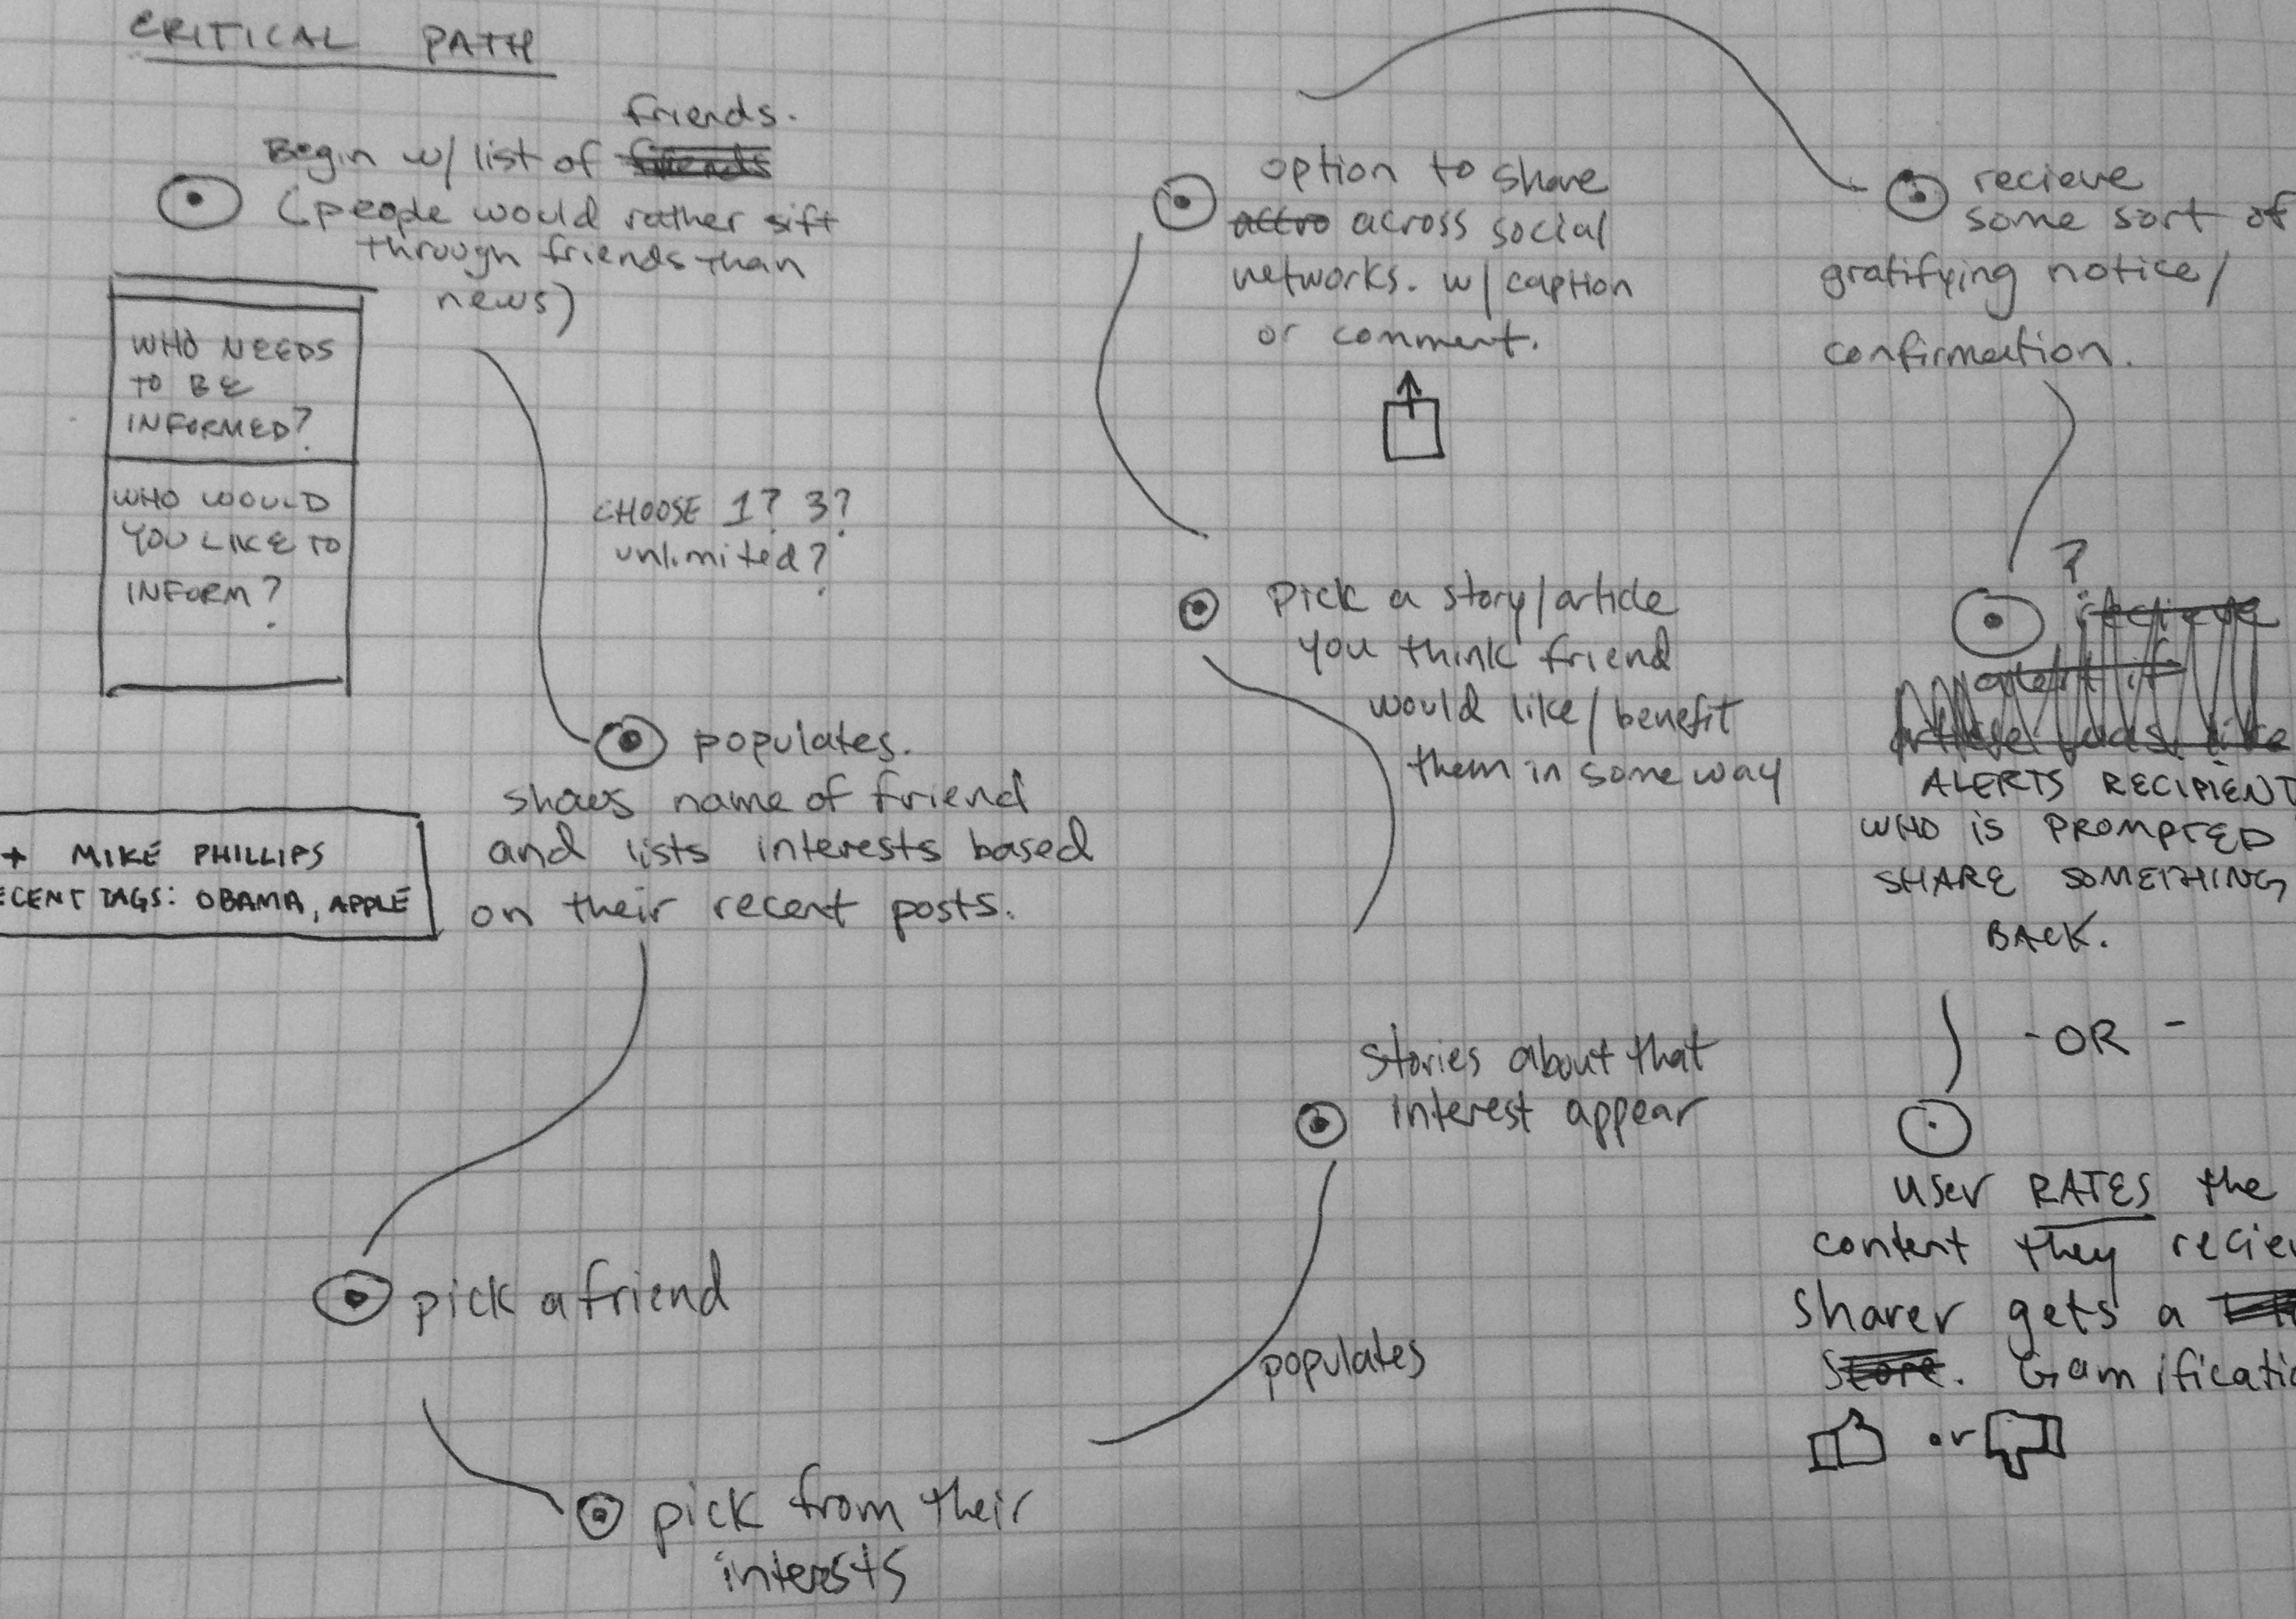 CRITICAL PATH
friends.
Begin w/ list of friends
(people would rather sift
through friends than
news)
WHO NEEDS
TO BE
INFORMED?
WHO WOULD
YOU LIKE TO
INFORM?
CHOOSE 1? 3?
unlimited?
populates.
shows name of friend
and lists interests based
on their recent posts.
+ MIKE PHILLIPS
ECENT TAGS: OBAMA, APPLE
pick a friend
pick from their
intersts
populates
Stories about that
interest appear
Pick a story/article
you think friend
would like/benefit
them in some way
option to share
accro across social
networks. w/ caption
or comment.
recieve
some sort of
gratifying notice/
confirmation.
?
recieve
alert if
ALERTS RECIPIENT
WHO IS PROMPTED
SHARE SOMETHING
BACK.
- OR -
user RATES the
content they recie
sharer gets a
Score. Gamificatio
or